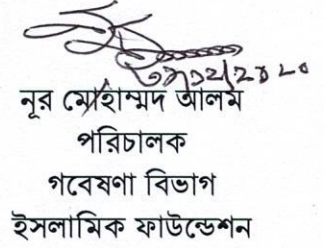 নূর মোহাম্মদ আলম
পরিচালক
গবেষণা বিভাগ
ইসলামিক ফাউন্ডেশন